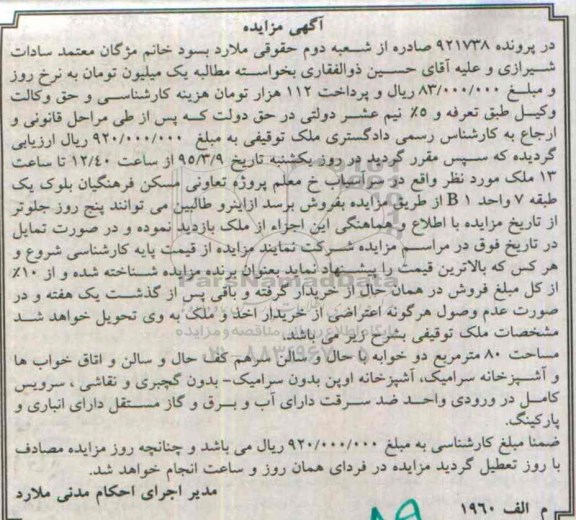 آگهی مزایده
در پرونده ۹۲۱۷۳۸ صادره از شعبه دوم حقوقی ملارد بسود خانم مژگان معتمد سادات
شیرازی و علیه آقای حسین ذوالفقاری بخواسته مطالبه یک میلیون تومان به نرخ روز
و مبلغ ۸۳/۰۰۰/۰۰۰ ریال و پرداخت ۱۱۲ هزار تومان هزینه کارشناسی و حق وکالت
وکیل طبق تعرفه و ۵٪ نیم عشر دولتی در حق دولت که پس از طی مراحل قانونی و
ارجاع به کارشناس رسمی دادگستری ملک توقیفی به مبلغ ۹۲۰/۰۰۰/۰۰۰ ریال ارزیابی
گردیده که سپس مقرر گردید در روز یکشنبه تاریخ ۹۵/۳/۹ از ساعت ۱۲/۴۰ تا ساعت
۱۳ ملک مورد نظر واقع در سرآسیاب خ معلم پروژه تعاونی مسکن فرهنگیان بلوک یک
طبقه ۷ واحد B ۱ از طریق مزایده بفروش برسد ازاینرو طالبین می توانند پنج روز جلوتر
از تاریخ مزایده با اطلاع و هماهنگی این اجراء از ملک بازدید نموده و در صورت تمایل
در تاریخ فوق در مراسم مزایده شرکت نمایند مزایده از قیمت پایه کارشناسی شروع و
هر کس که بالاترین قیمت را پیشنهاد نماید بعنوان برنده مزایده شناخته شده و از ۱۰٪
از کل مبلغ فروش در همان حال از خریدار گرفته و باقی پس از گذشت یک هفته و در
صورت عدم وصول هرگونه اعتراضی از خریدار اخذ و ملک به وی تحویل خواهد شد
مشخصات ملک توقیفی بشرح زیر می باشد.
مساحت ۸۰ مترمربع دو خوابه با حال و سالن سرهم کف حال و سالن و اتاق خواب ها
و آشپزخانه سرامیک، آشپزخانه اوپن بدون سرامیک- بدون گچبری و نقاشی ، سرویس
کامل در ورودی واحد ضد سرقت دارای آب و برق و گاز مستقل دارای انباری و
پارکینگ.
ضمنا مبلغ کارشناسی به مبلغ ۹۲۰/۰۰۰/۰۰۰ ریال می باشد و چنانچه روز مزایده مصادف
با روز تعطیل گردید مزایده در فردای همان روز و ساعت انجام خواهد شد.
مدیر اجرای احکام مدنی ملارد
م الف ۱۹۶۰
ParsNamadData